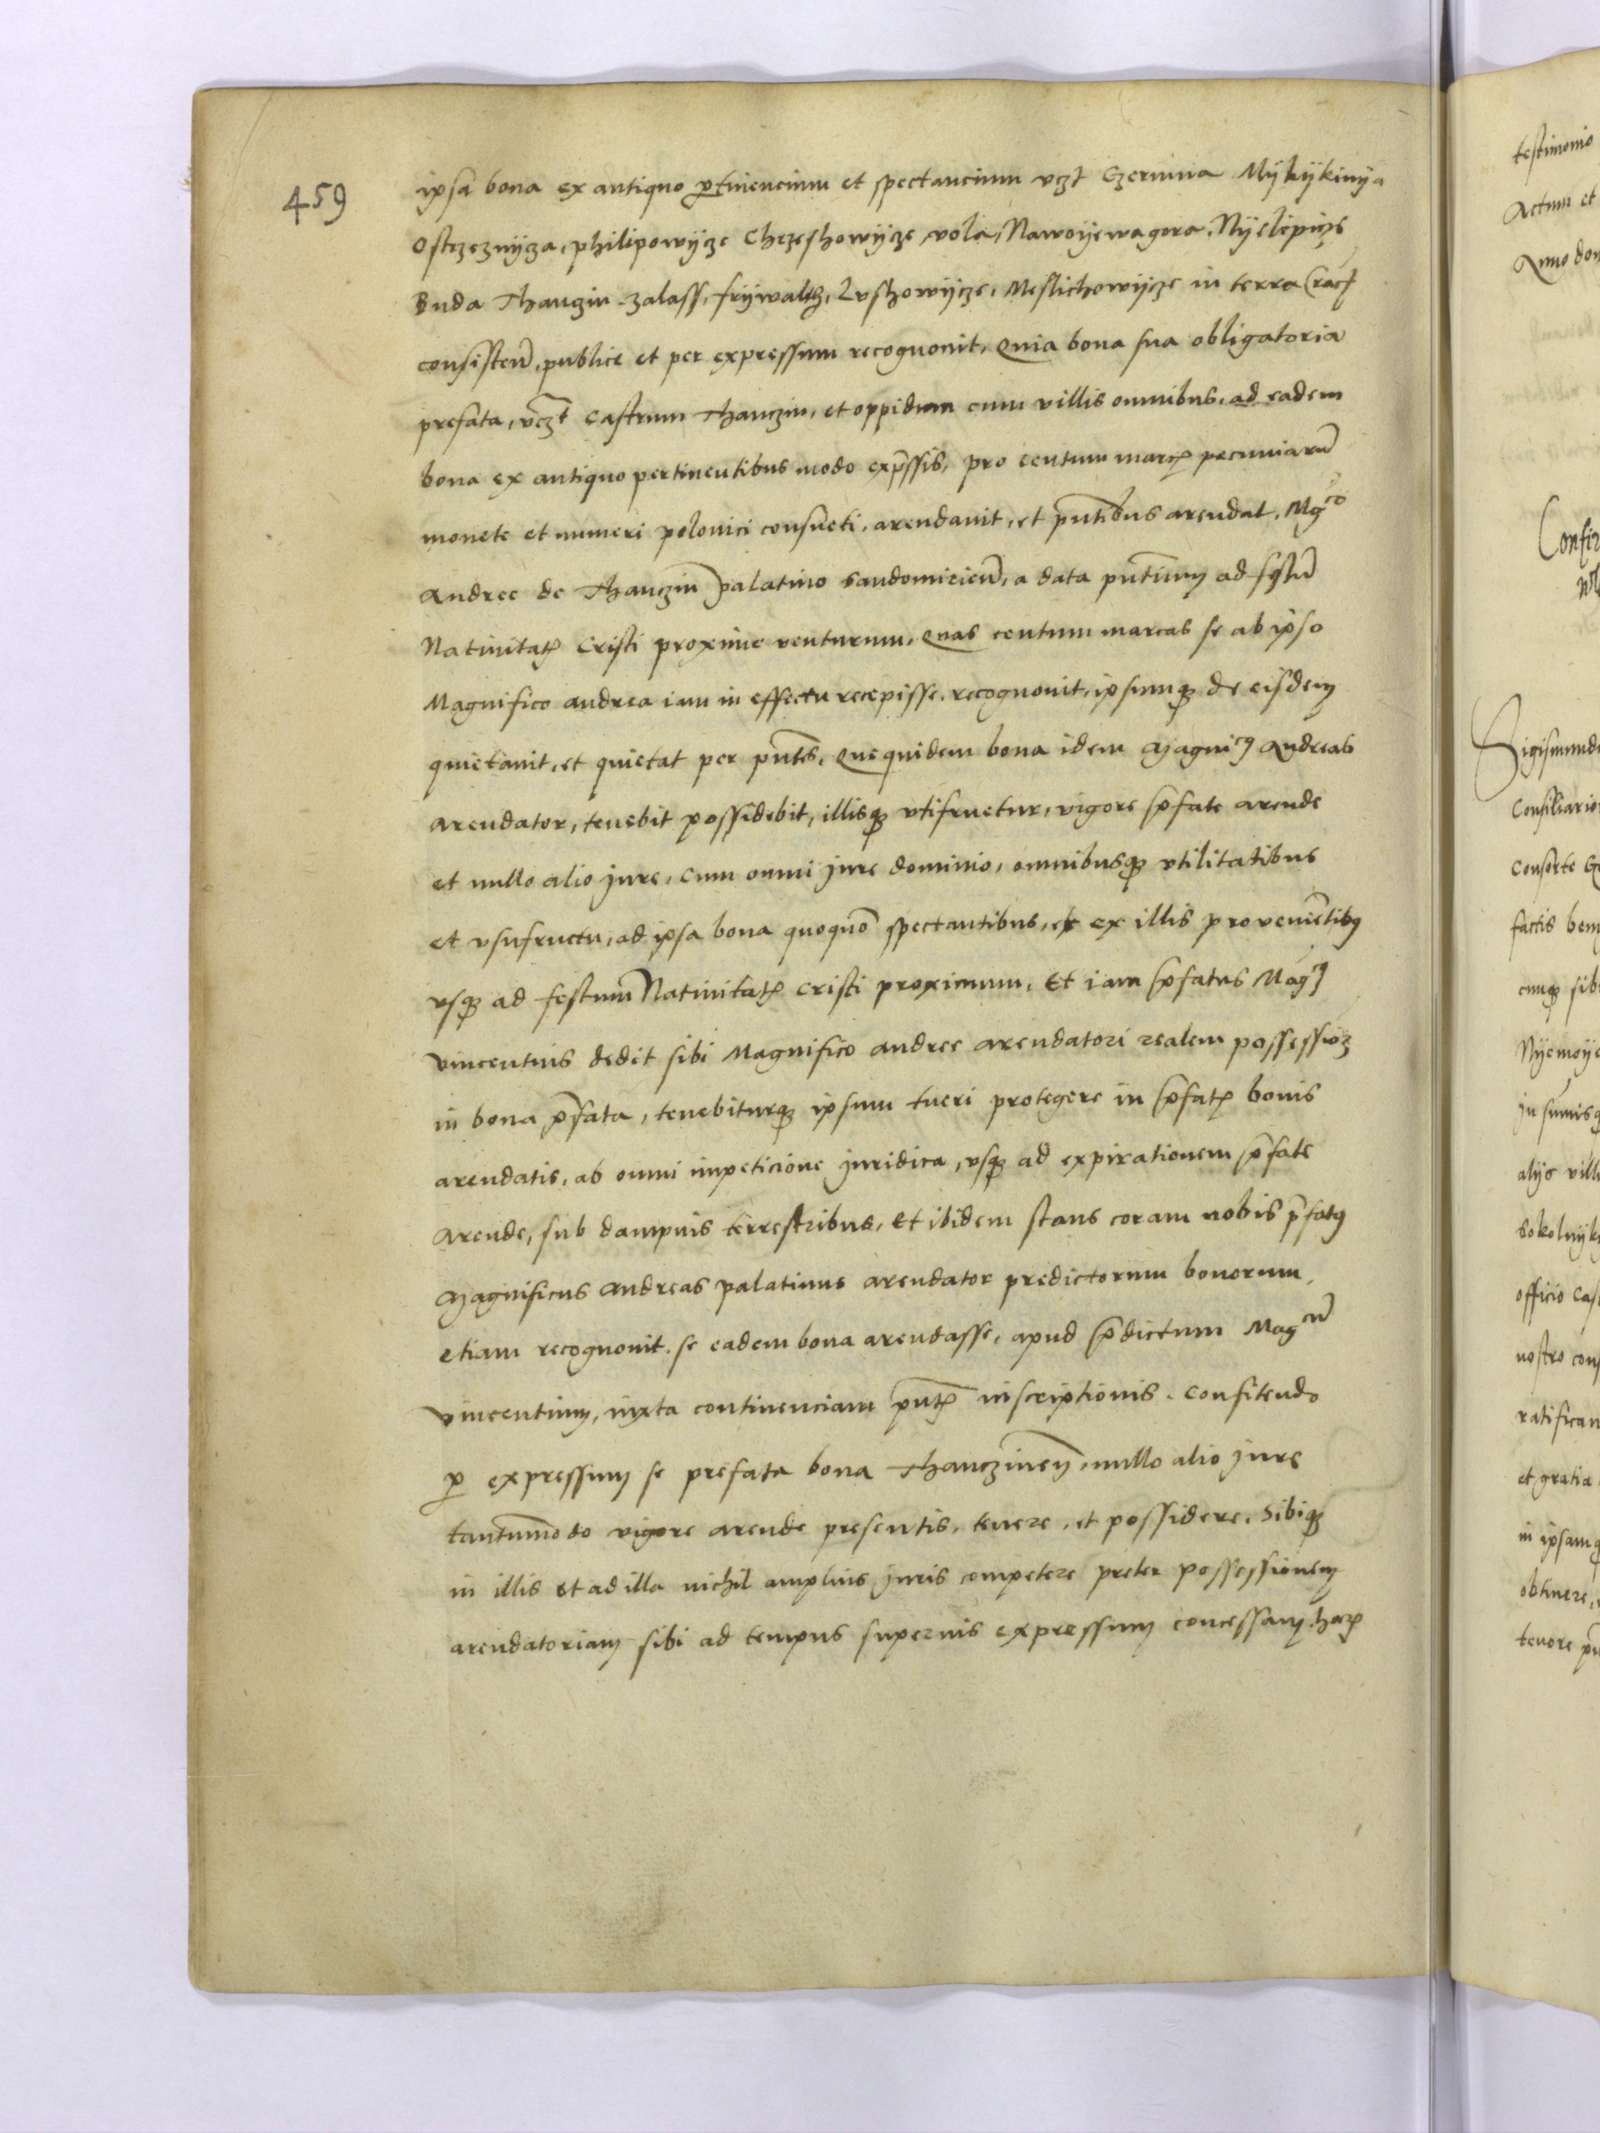 459
ipsa bona ex antiquo ptinencium et spectancium vczt Czernina Mykykinya
Ostrzeznycza, philipowycze Chrzeshowycze vola, Nawoyewagora, Nyelepicze
Buda Thanczin zalass, frywalth, Lvshowycze, Meslichowycze in terra Crac
consisten, publice et per expressum recognovit, Quia bona sua obligatoria
prefata, vczt Castrum Thanczin, et oppidum cum villis omnibus, ad eadem
bona ex antiquo pertinentibus modo expssis, pro centum marcis pecuniaru
monete et numeri polonici consueti, arendavit, et pntibus arendat, Mgco
Andree de Thanczin palatino Sandomirien, a data pntium ad fstu
Nativitatis Cristi proxime venturum, Quas centum marcas se ab ipso
Magnifico andrea iam in effectu recepisse, recognovit, ipsumq de eisdem
quietavit, et quietat per pntes, Que quidem bona idem Magnicus Andreas
arendator, tenebit possidebit, illisq vtifruetur, vigore pfate arende
et nullo alio Jure, cum omni Jure dominio, omnibusq vtilitatibus
et vsufructu, ad ipsa bona quoquo spectantibus, et ex illis provenietibus
vsq ad festum Nativitatis Cristi proximum, Et iam pfatus Magcus
vincentius dedit sibi Magnifico andree arendatori realem possessioz
in bona pfata, tenebiturq ipsum tueri protegere in pfatis bonis
arendatis, ab omni impeticione Juridica, vsq ad expirationem pfate
arende, sub dampnis terrestribus, Et ibidem stans coram nobis pfatus
Magnificus Andreas palatinus arendator predictorum bonorum,
etiam recognovit se eadem bona arendasse, apud pdictum Magcum
vincentium, iuxta continenciam pntis inscriptionis, Confitendo
p expressum se prefata bona Thanczinen nullo alio Jure
tantummodo vigore arende presentis, tenere, et possidere, Sibiq
in illis et ad illa nichil amplius Juris competere preter possessionem
arendatoriam sibi ad tempus superius expressum concessam, haru
testimonio
Actum et
Anno dom
Confir
Sigismundu
Consiliario
Consorte
factis ben
cumq sibi
Nyemoye
In sumisq
alijs vill
Sokolnyk
officio cas
nostro cons
ratifican
et gratia
in ipsam
obtinere,
tenore